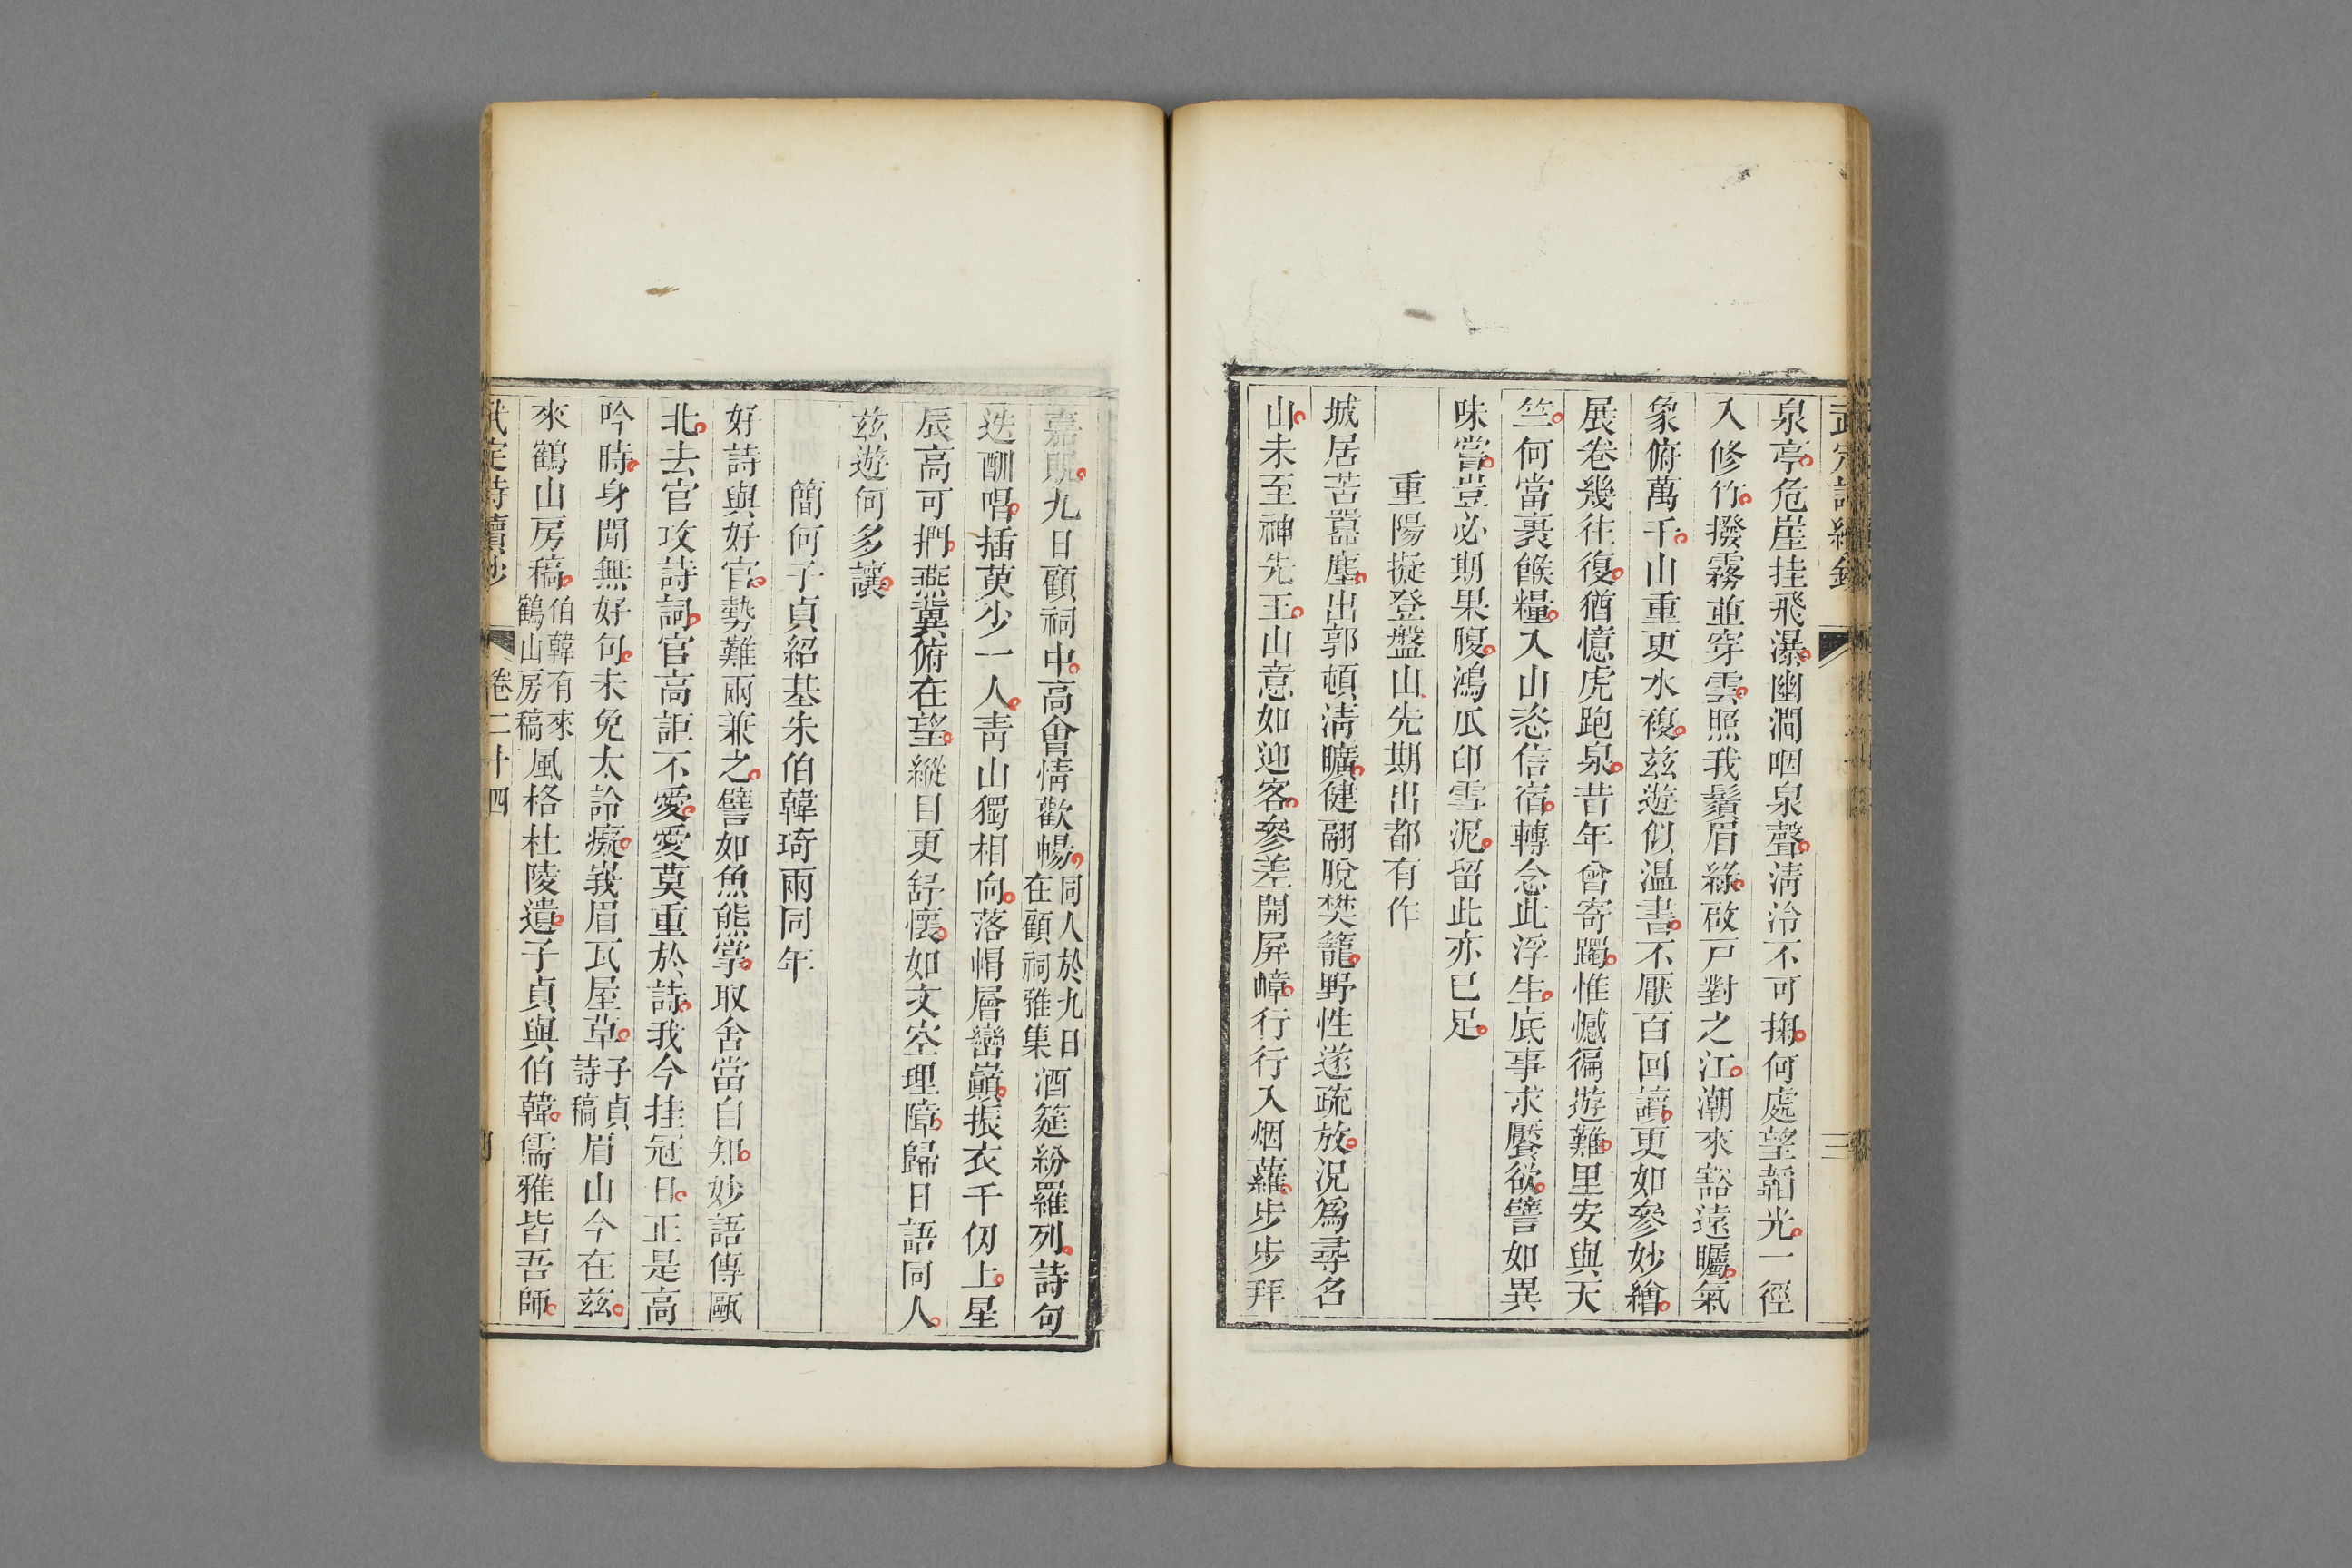 泉亭危崖挂飛瀑幽澗咽泉聲淸泠不可掬何處望韜光一徑
入修竹撥霧並穿雲照我鬚眉綠啟戸對之江潮來豁遠矚氣
象俯萬千山重更水複茲遊似温書不厭百回讀更如參妙繪
展卷幾往復猶憶虎跑泉昔年曾寄躅惟憾徧遊難里安與天
竺何當裹餱糧入山恣信宿轉念此浮生底事求饜欲譬如異
味嘗豈必期果腹鴻爪印雪泥留此亦已足
重陽擬登盤山先期出都有作
城居苦囂塵出郭頓淸曠健翮脫樊籠野性遂疏放況爲尋名
山未至神先王山意如迎客參差開屏嶂行行入烟蘿步步拜
嘉貺九日顧祠中高會情歡暢同人於九日在顧祠雅集酒筵紛羅列詩句
迭酬唱插萸少一人靑山獨相向落帽層巒巔振衣千仞上星
辰高可捫燕冀俯在望縱目更舒懷如文空理障歸日語同人
茲遊何多讓
簡何子貞紹基朱伯韓琦兩同年
好詩與好官勢難兩兼之譬如魚熊掌取舍當自知妙語傳甌
北去官攻詩詞官高詎不愛愛莫重於詩我今挂冠日正是高
吟時身閒無好句未免太詅癡峩眉瓦屋草子貞詩稿眉山今在茲
來鶴山房稿伯韓有來鶴山房稿風格杜陵遺子貞與伯韓儒雅皆吾師
武定詩續鈔 卷二十四